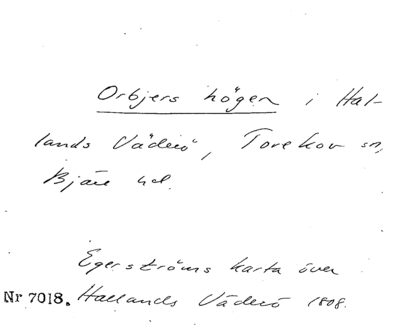 Orbjers högen i Hal-
lands Väderö, Torekov sn,
Bjäre hd.
Egerströms karta över
Nr 7018. Hallands Väderö 1808.